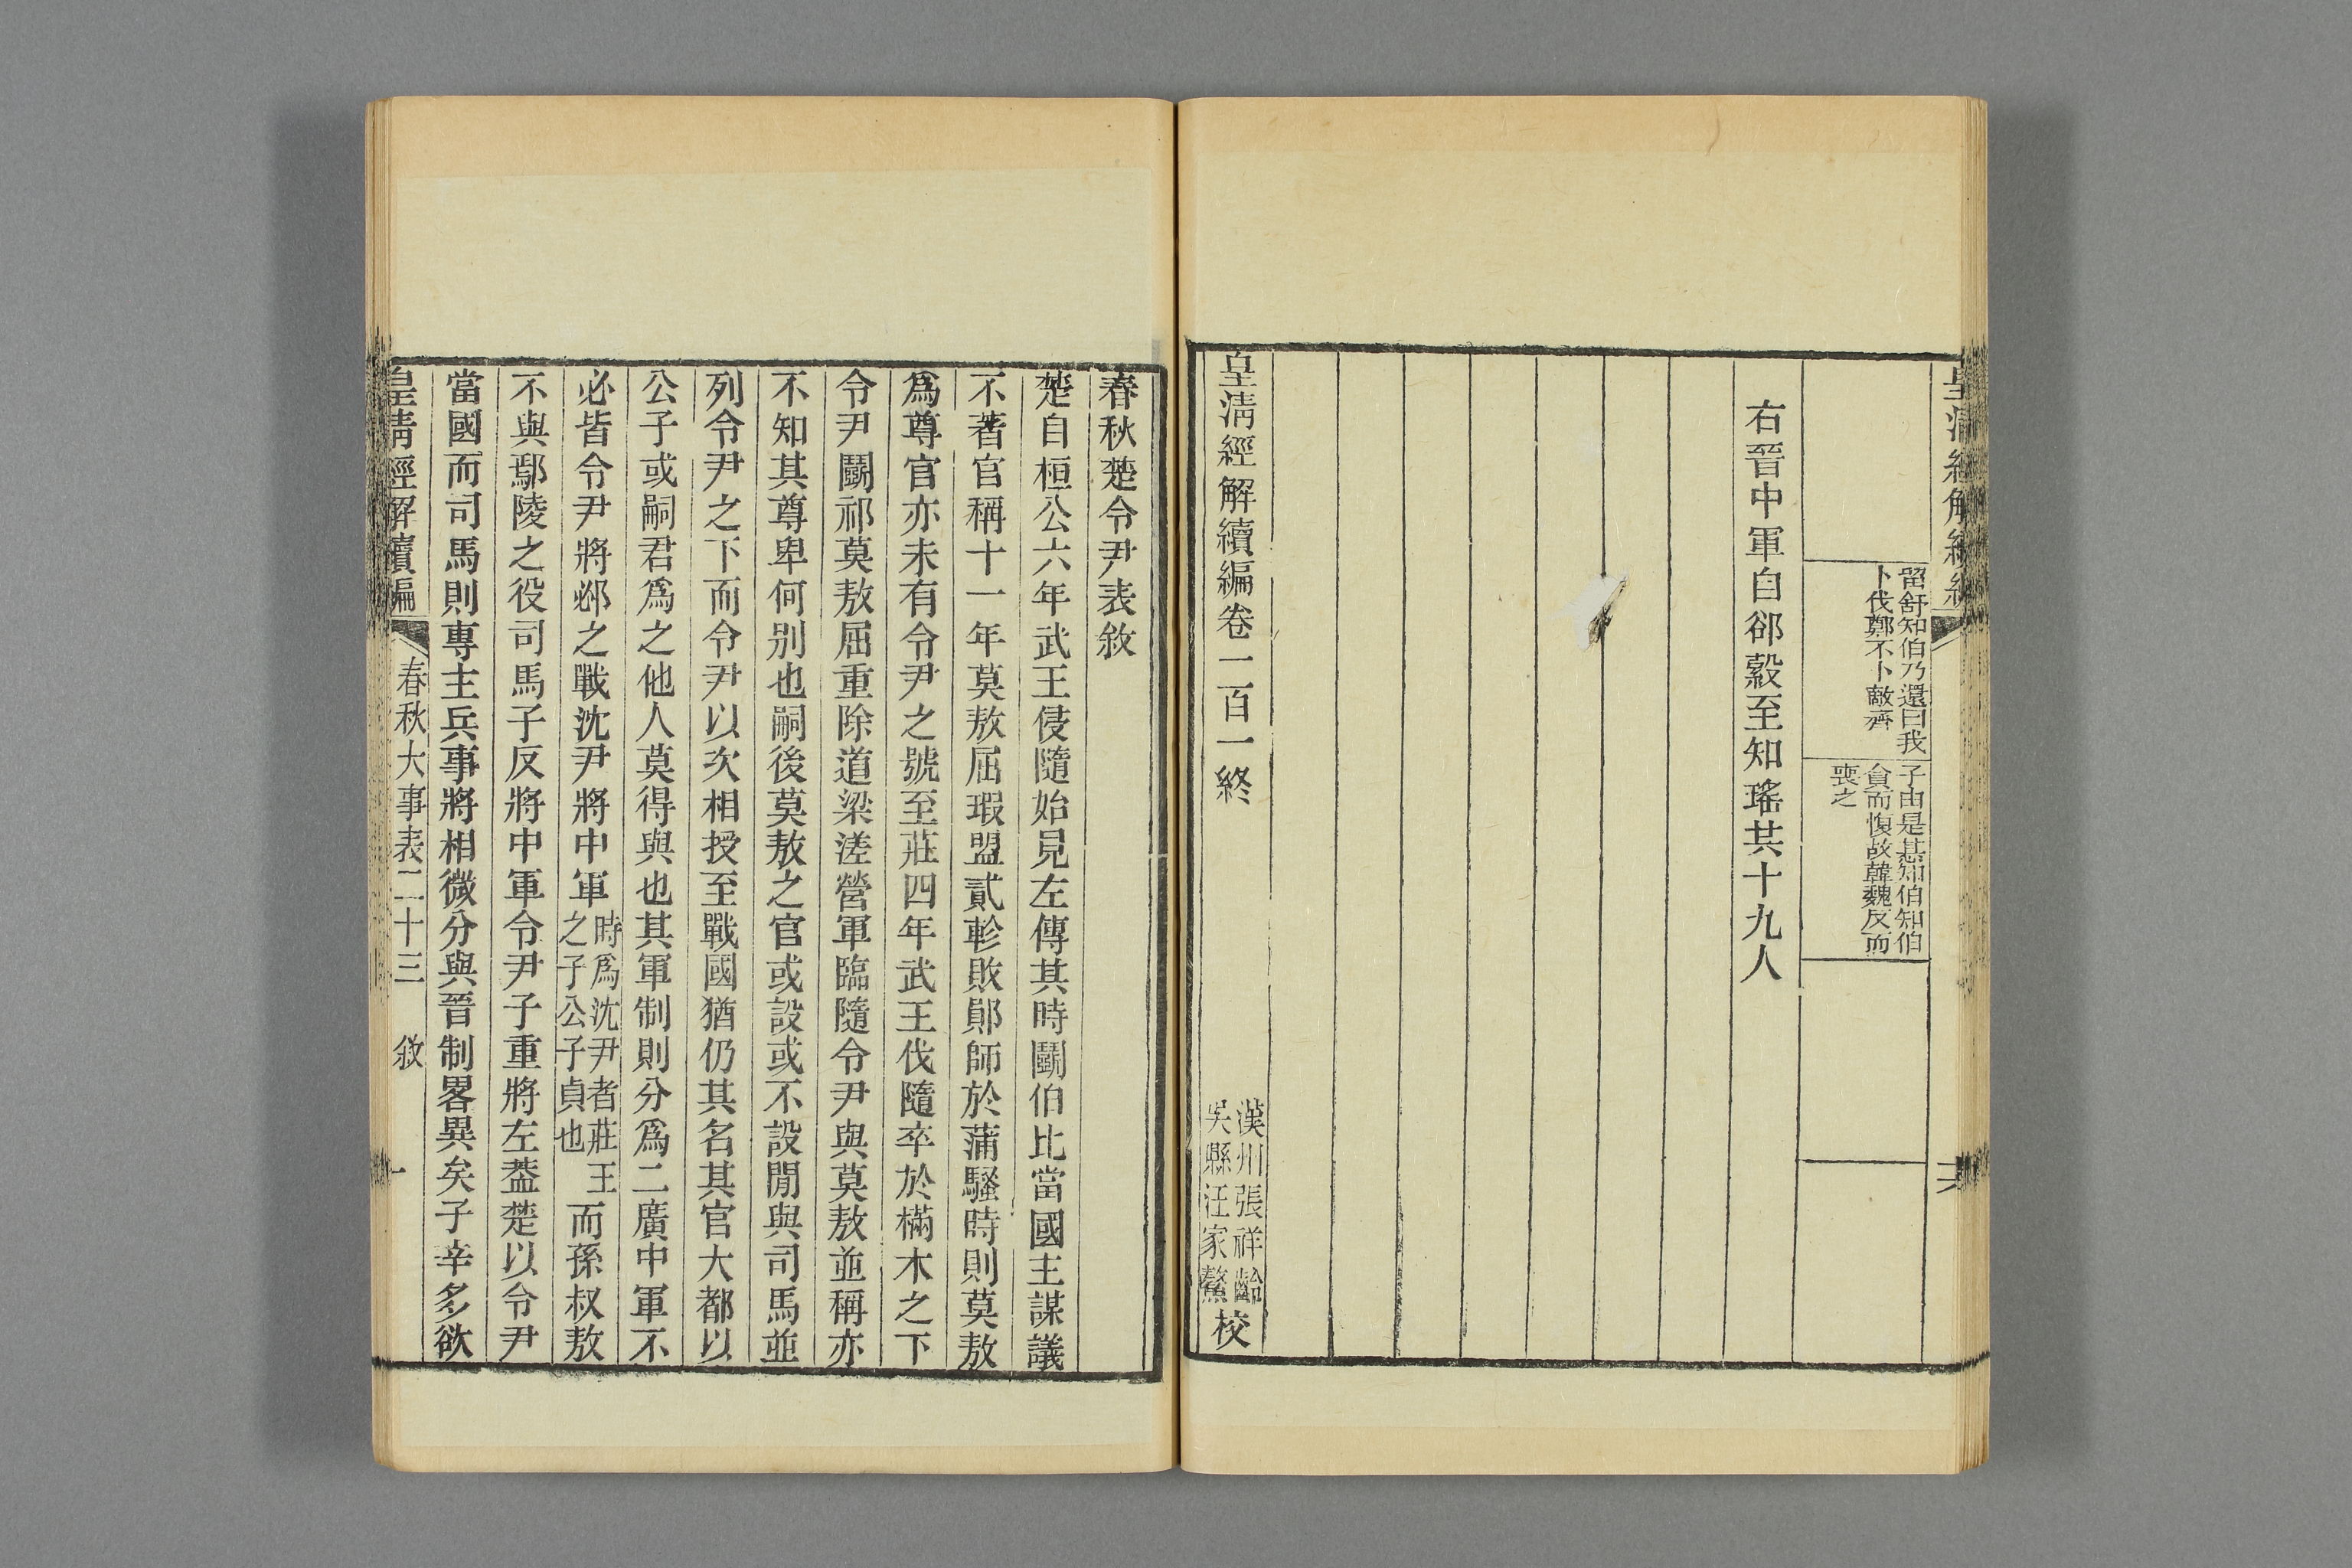 皇清經解續編
留舒知伯乃還曰我
卜伐鄭不卜敵齊
子由是惎知伯知伯
貪而愎故韓魏反而
喪之
右晉中軍自郤縠至知瑤共十九人
皇清經解續編卷一百一終
漢州張祥齡
吳縣汪家鰲
校
春秋楚令尹表敘
楚自桓公六年武王侵隨始見左傳其時鬭伯比當國主謀議
不著官稱十一年莫敖屈瑕盟貳軫敗鄖師於蒲騷時則莫敖
爲尊官亦未有令尹之號至莊四年武王伐隨卒於樠木之下
令尹鬭祁莫敖屈重除道梁溠營軍臨隨令尹與莫敖並稱亦
不知其尊卑何別也嗣後莫敖之官或設或不設閒與司馬並
列令尹之下而令尹以次相授至戰國猶仍其名其官大都以
公子或嗣君爲之他人莫得與也其軍制則分爲二廣中軍不
必皆令尹將邲之戰沈尹將中軍時爲沈尹者莊王之子公子貞也而孫叔敖
不與鄢陵之役司馬子反將中軍令尹子重將左葢楚以令尹
當國而司馬則專主兵事將相微分與晉制畧異矣子辛多欲
皇清經解續編
春秋大事表二十三 敘
一